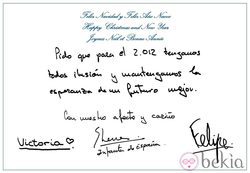 Feliz Navidad y Feliz Año Nuevo
Happy Christmas and New Year
Joyeux Noël et Bonne Année
Pido que para el 2.012 tengamos
todos ilusión y mantengamos la
esperanza de un futuro mejor.
Con nuestro afecto y cariño
Victoria
Elena
Infanta de España
Felipe
bekia